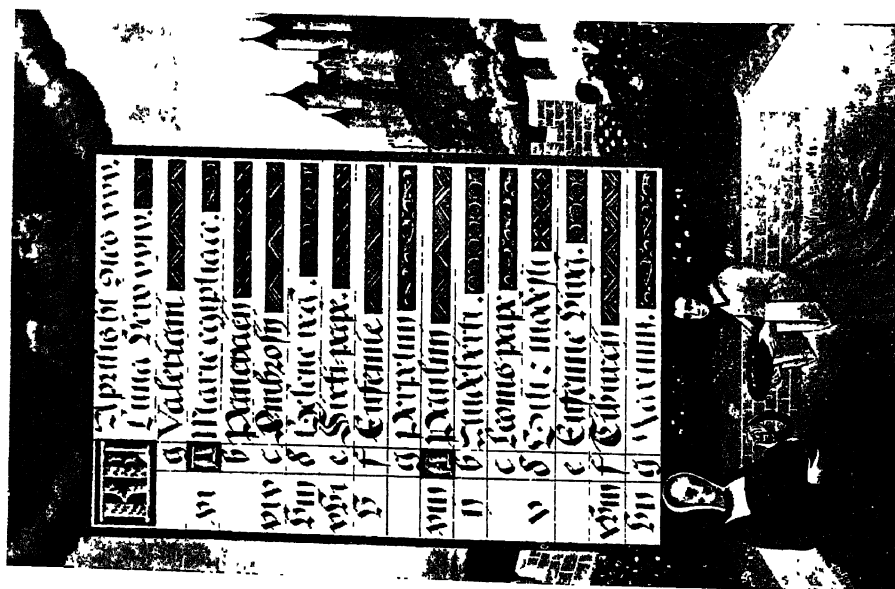 KL Aprilis ht dies xxx.
Luna vero xxix.
g Valeriani
vi A Marie egyptiace.
b Pancracii
xix c Ambrosii
viii d Helene reg.
xvi e Sixti pape.
v f Eufemie
g Perpetuu
xiii A Paulini
ii b
c Leonis pape
v d
e Eufemie virg.
xviii f Tiburcii
vii g Maximi.